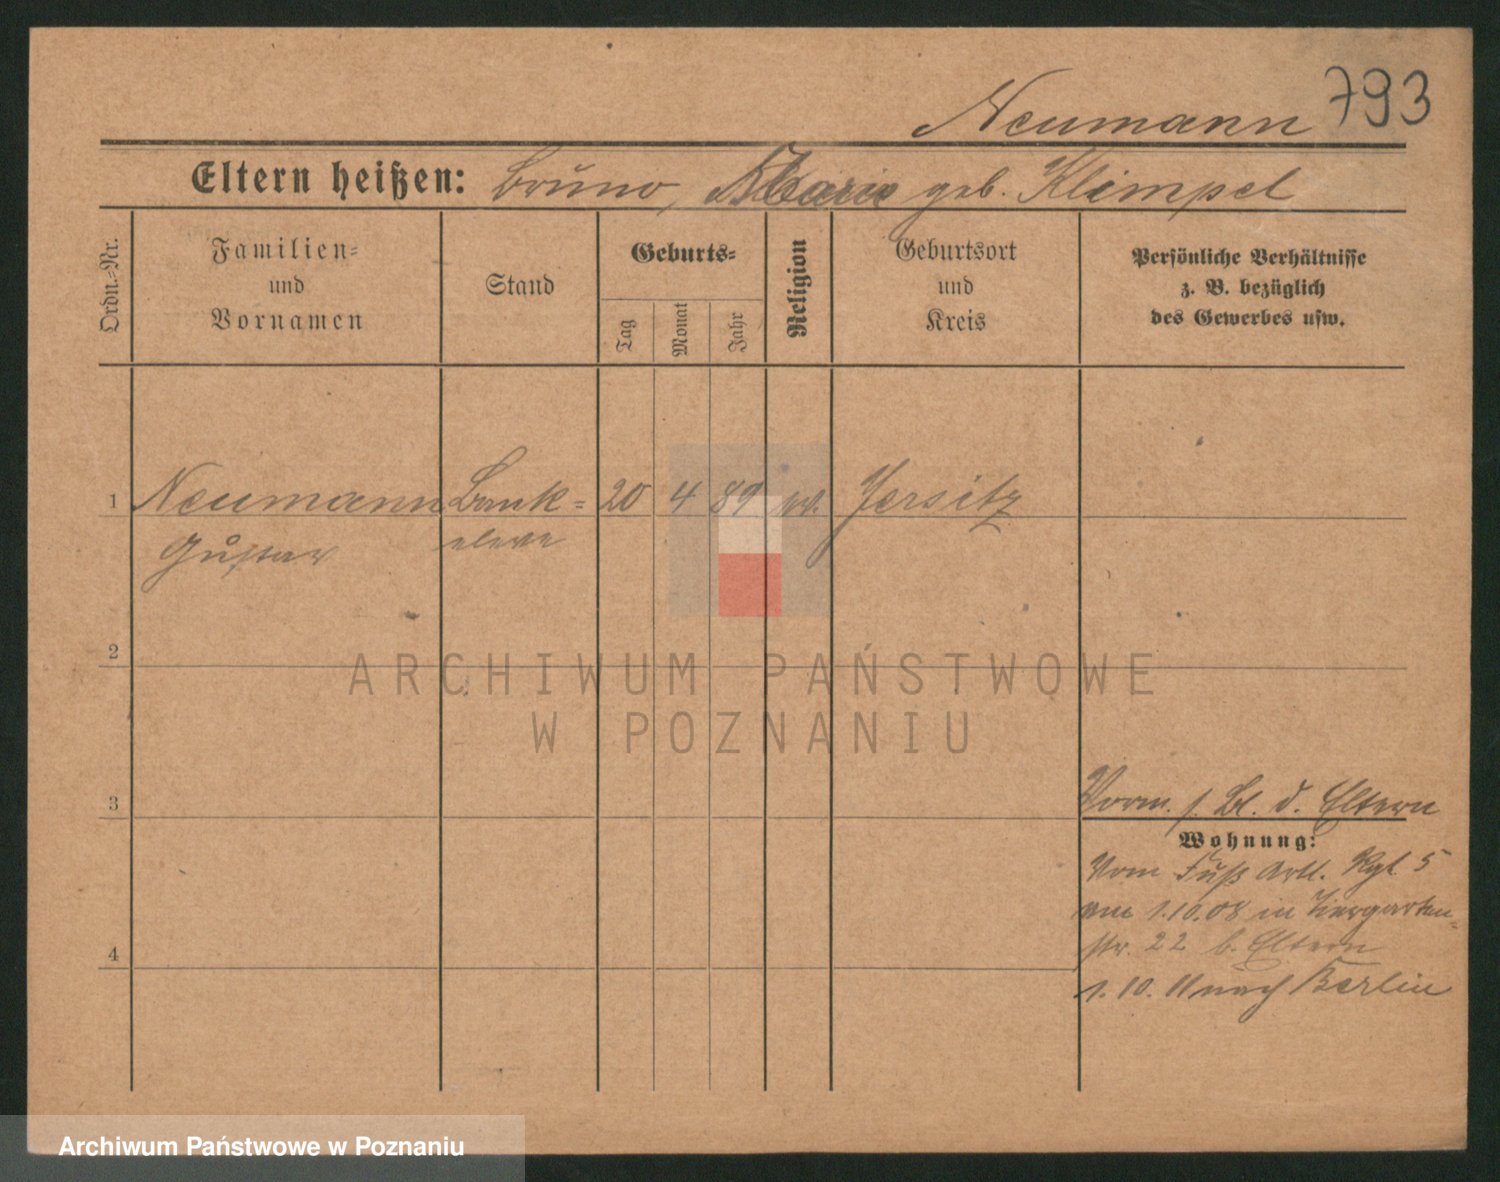 Neumann 793
Eltern heißen: Bruno, Marie geb. Klimpel
Ordn.-Nr.
Familien-
und
Vornamen
Stand
Geburts-
Tag
Monat
Jahr
Religion
Geburtsort
und
Kreis
Persönliche Verhältnisse
z. B. bezüglich
des Gewerbes usw.
1 Neumann Bank= 20 4 89 Jersitz
Gustav eleve
2
ARCHIWUM PAŃSTWOWE
W POZNANIU
3
Vorm. s. Bl. d. Eltern
Wohnung:
Vom Fuß Artl. Rgt 5
am 1.10.08 in Tiergarten=
str. 22 b. Eltern
4
1. 10. 11 nach Berlin
Archiwum Państwowe w Poznaniu